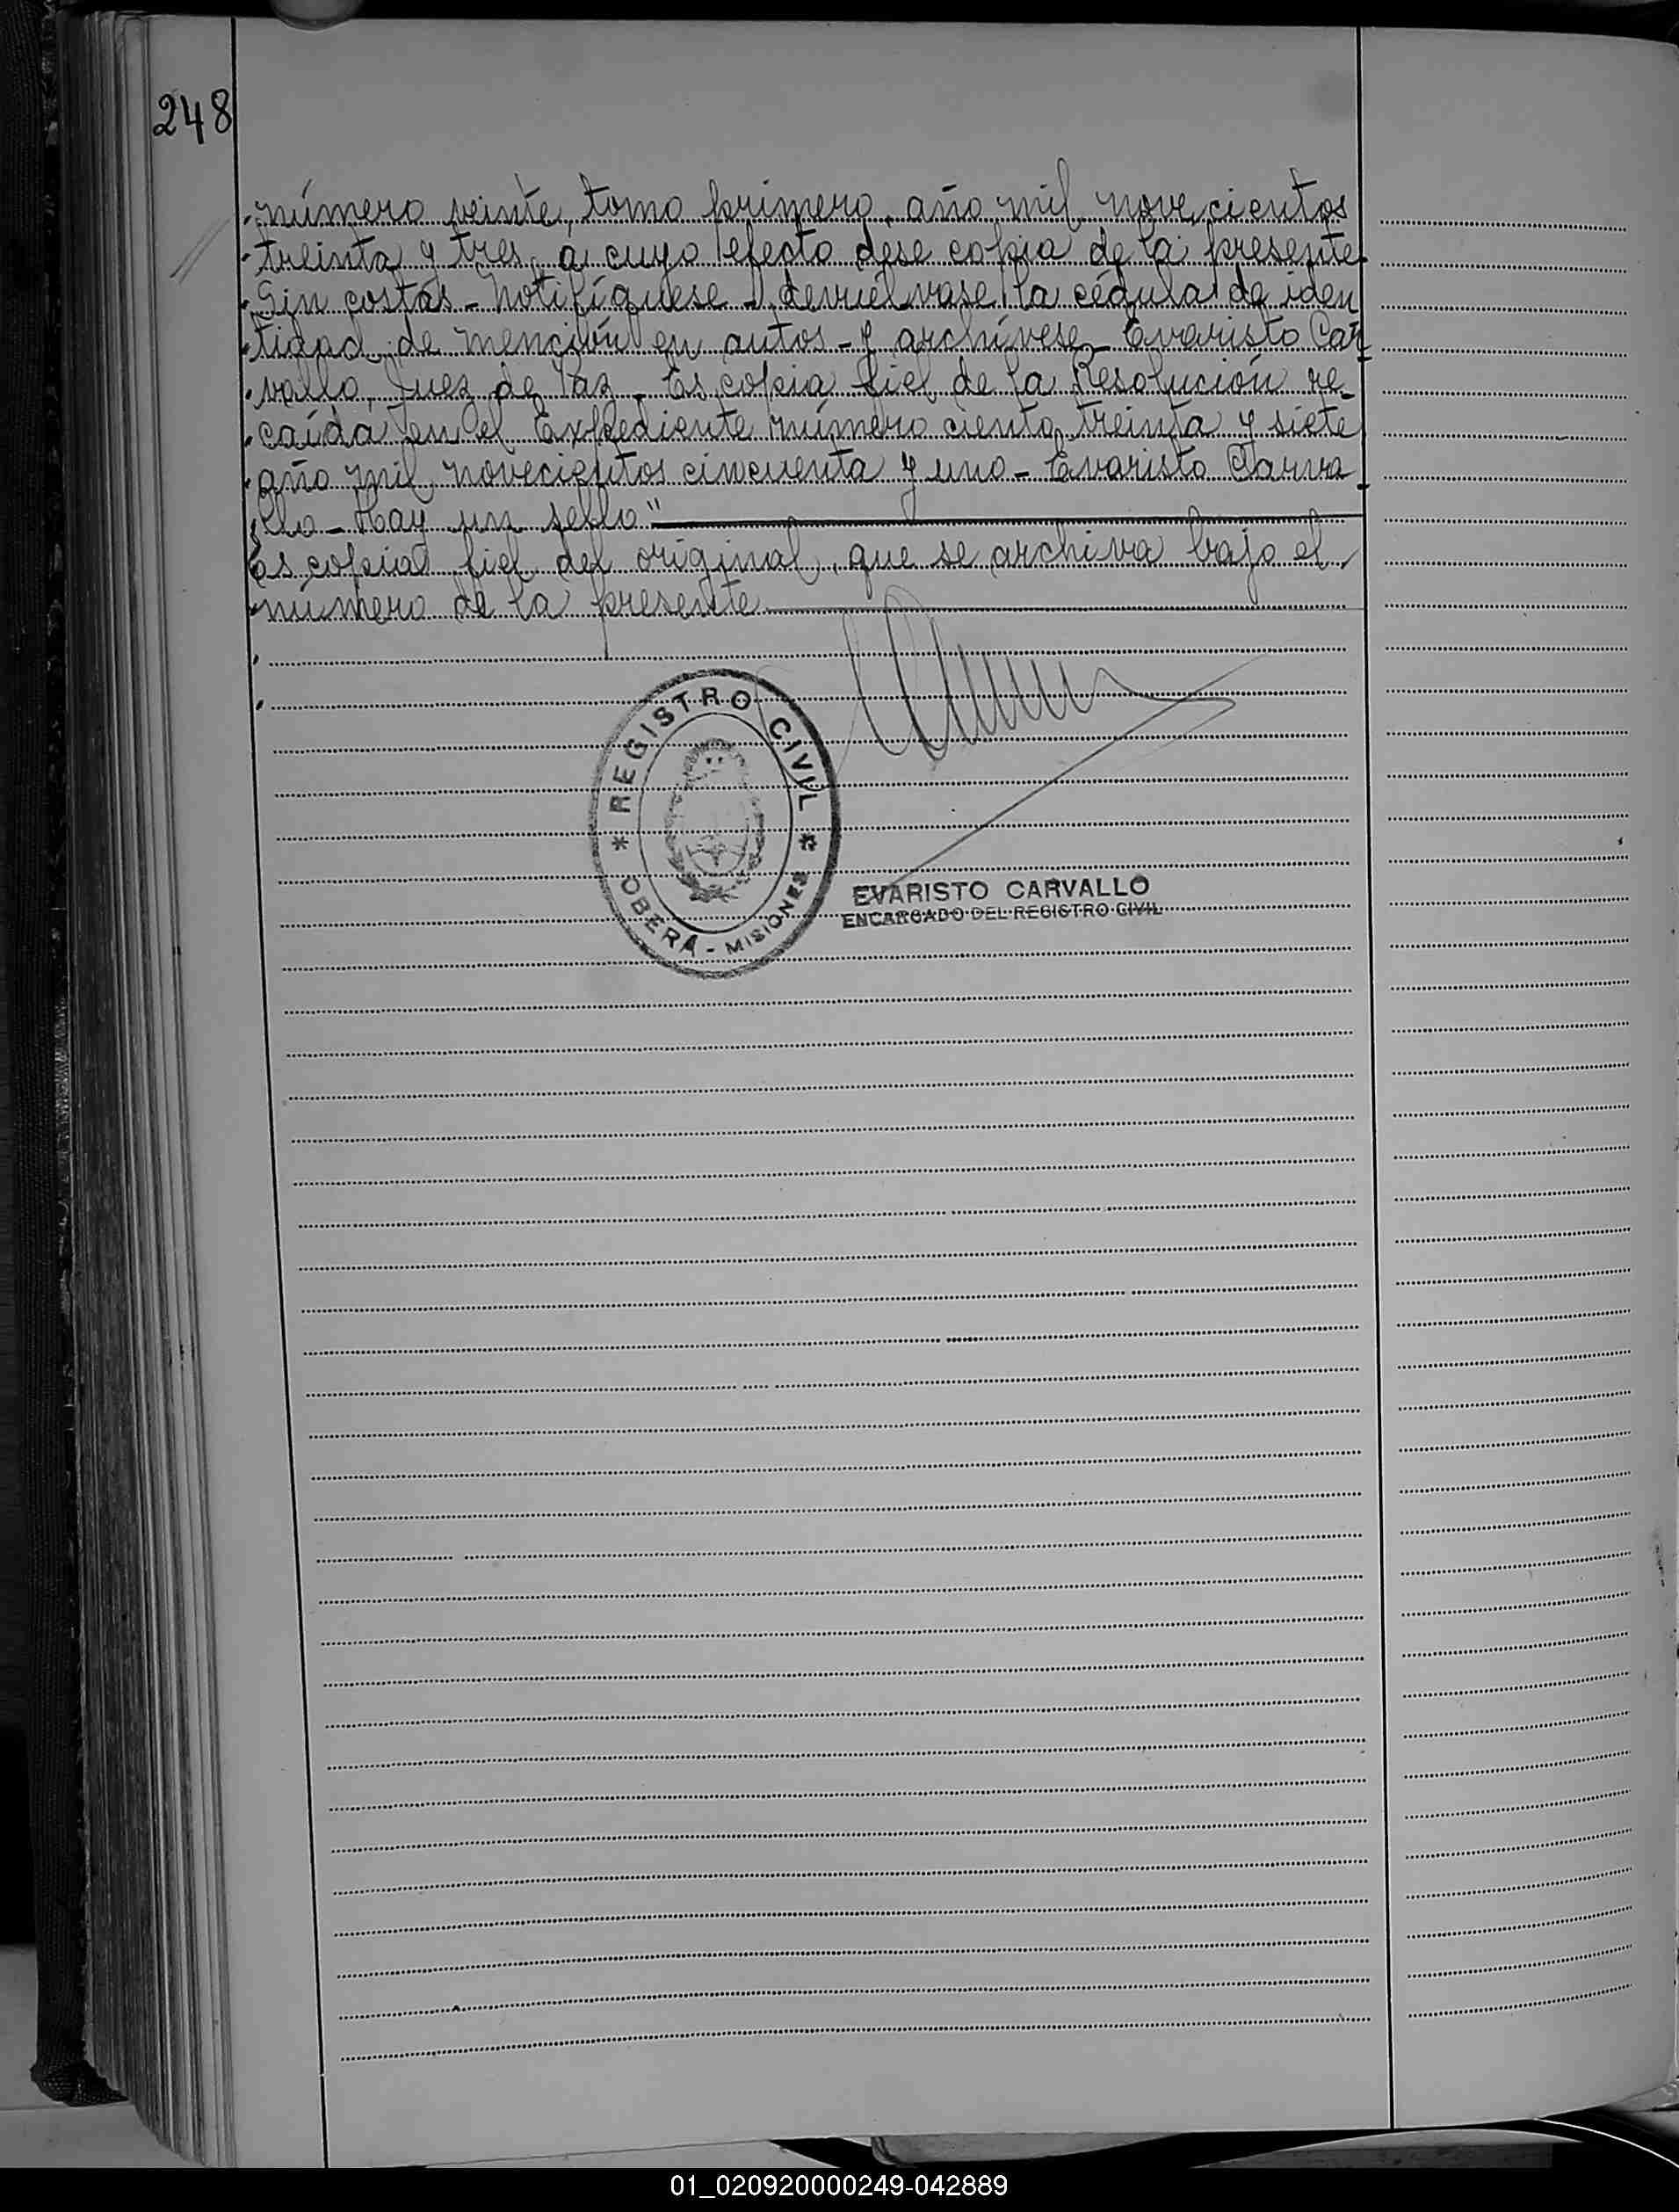 248
número veinte, tomo primero, año mil novecientos
treinta y tres, a cuyo efecto dese copia de la presente
Sin costas - Notifíquese - devuélvase la cédula de iden
tidad de mención en autos - y archívese - Evaristo Car
vallo, Juez de Paz - Es copia fiel de la Resolución re_
caída en el Expediente número ciento treinta y siete
año mil novecientos cincuenta y uno - Evaristo Carva_
llo - Hay un sello"
Es copia fiel del original, que se archiva bajo el
número de la presente
REGISTRO CIVIL
OBERÁ - MISIONES
EVARISTO CARVALLO
ENCARGADO DEL REGISTRO CIVIL
01_020920000249-042889